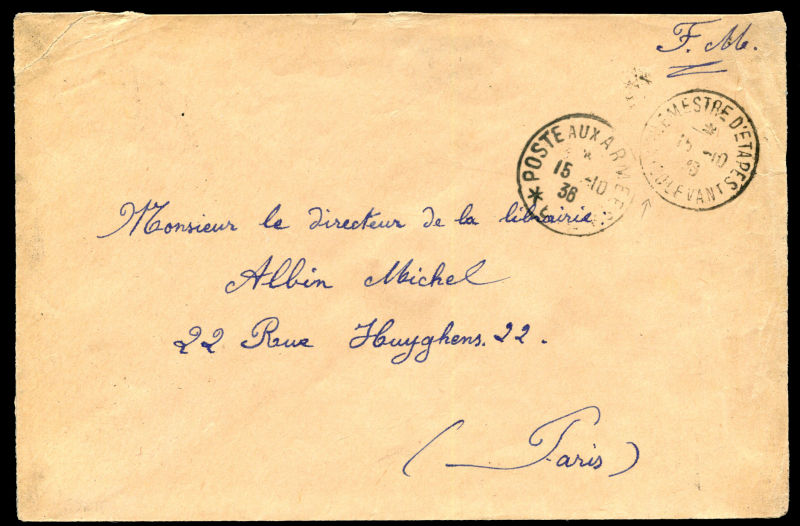 F. M.
POSTE AUX ARMÉES
*
15 -10
36
D'ETAPES
*
15 -10
LEVANT
Monsieur le directeur de la librairie
Albin Michel
22 Rue Huyghens. 22.
(Paris)